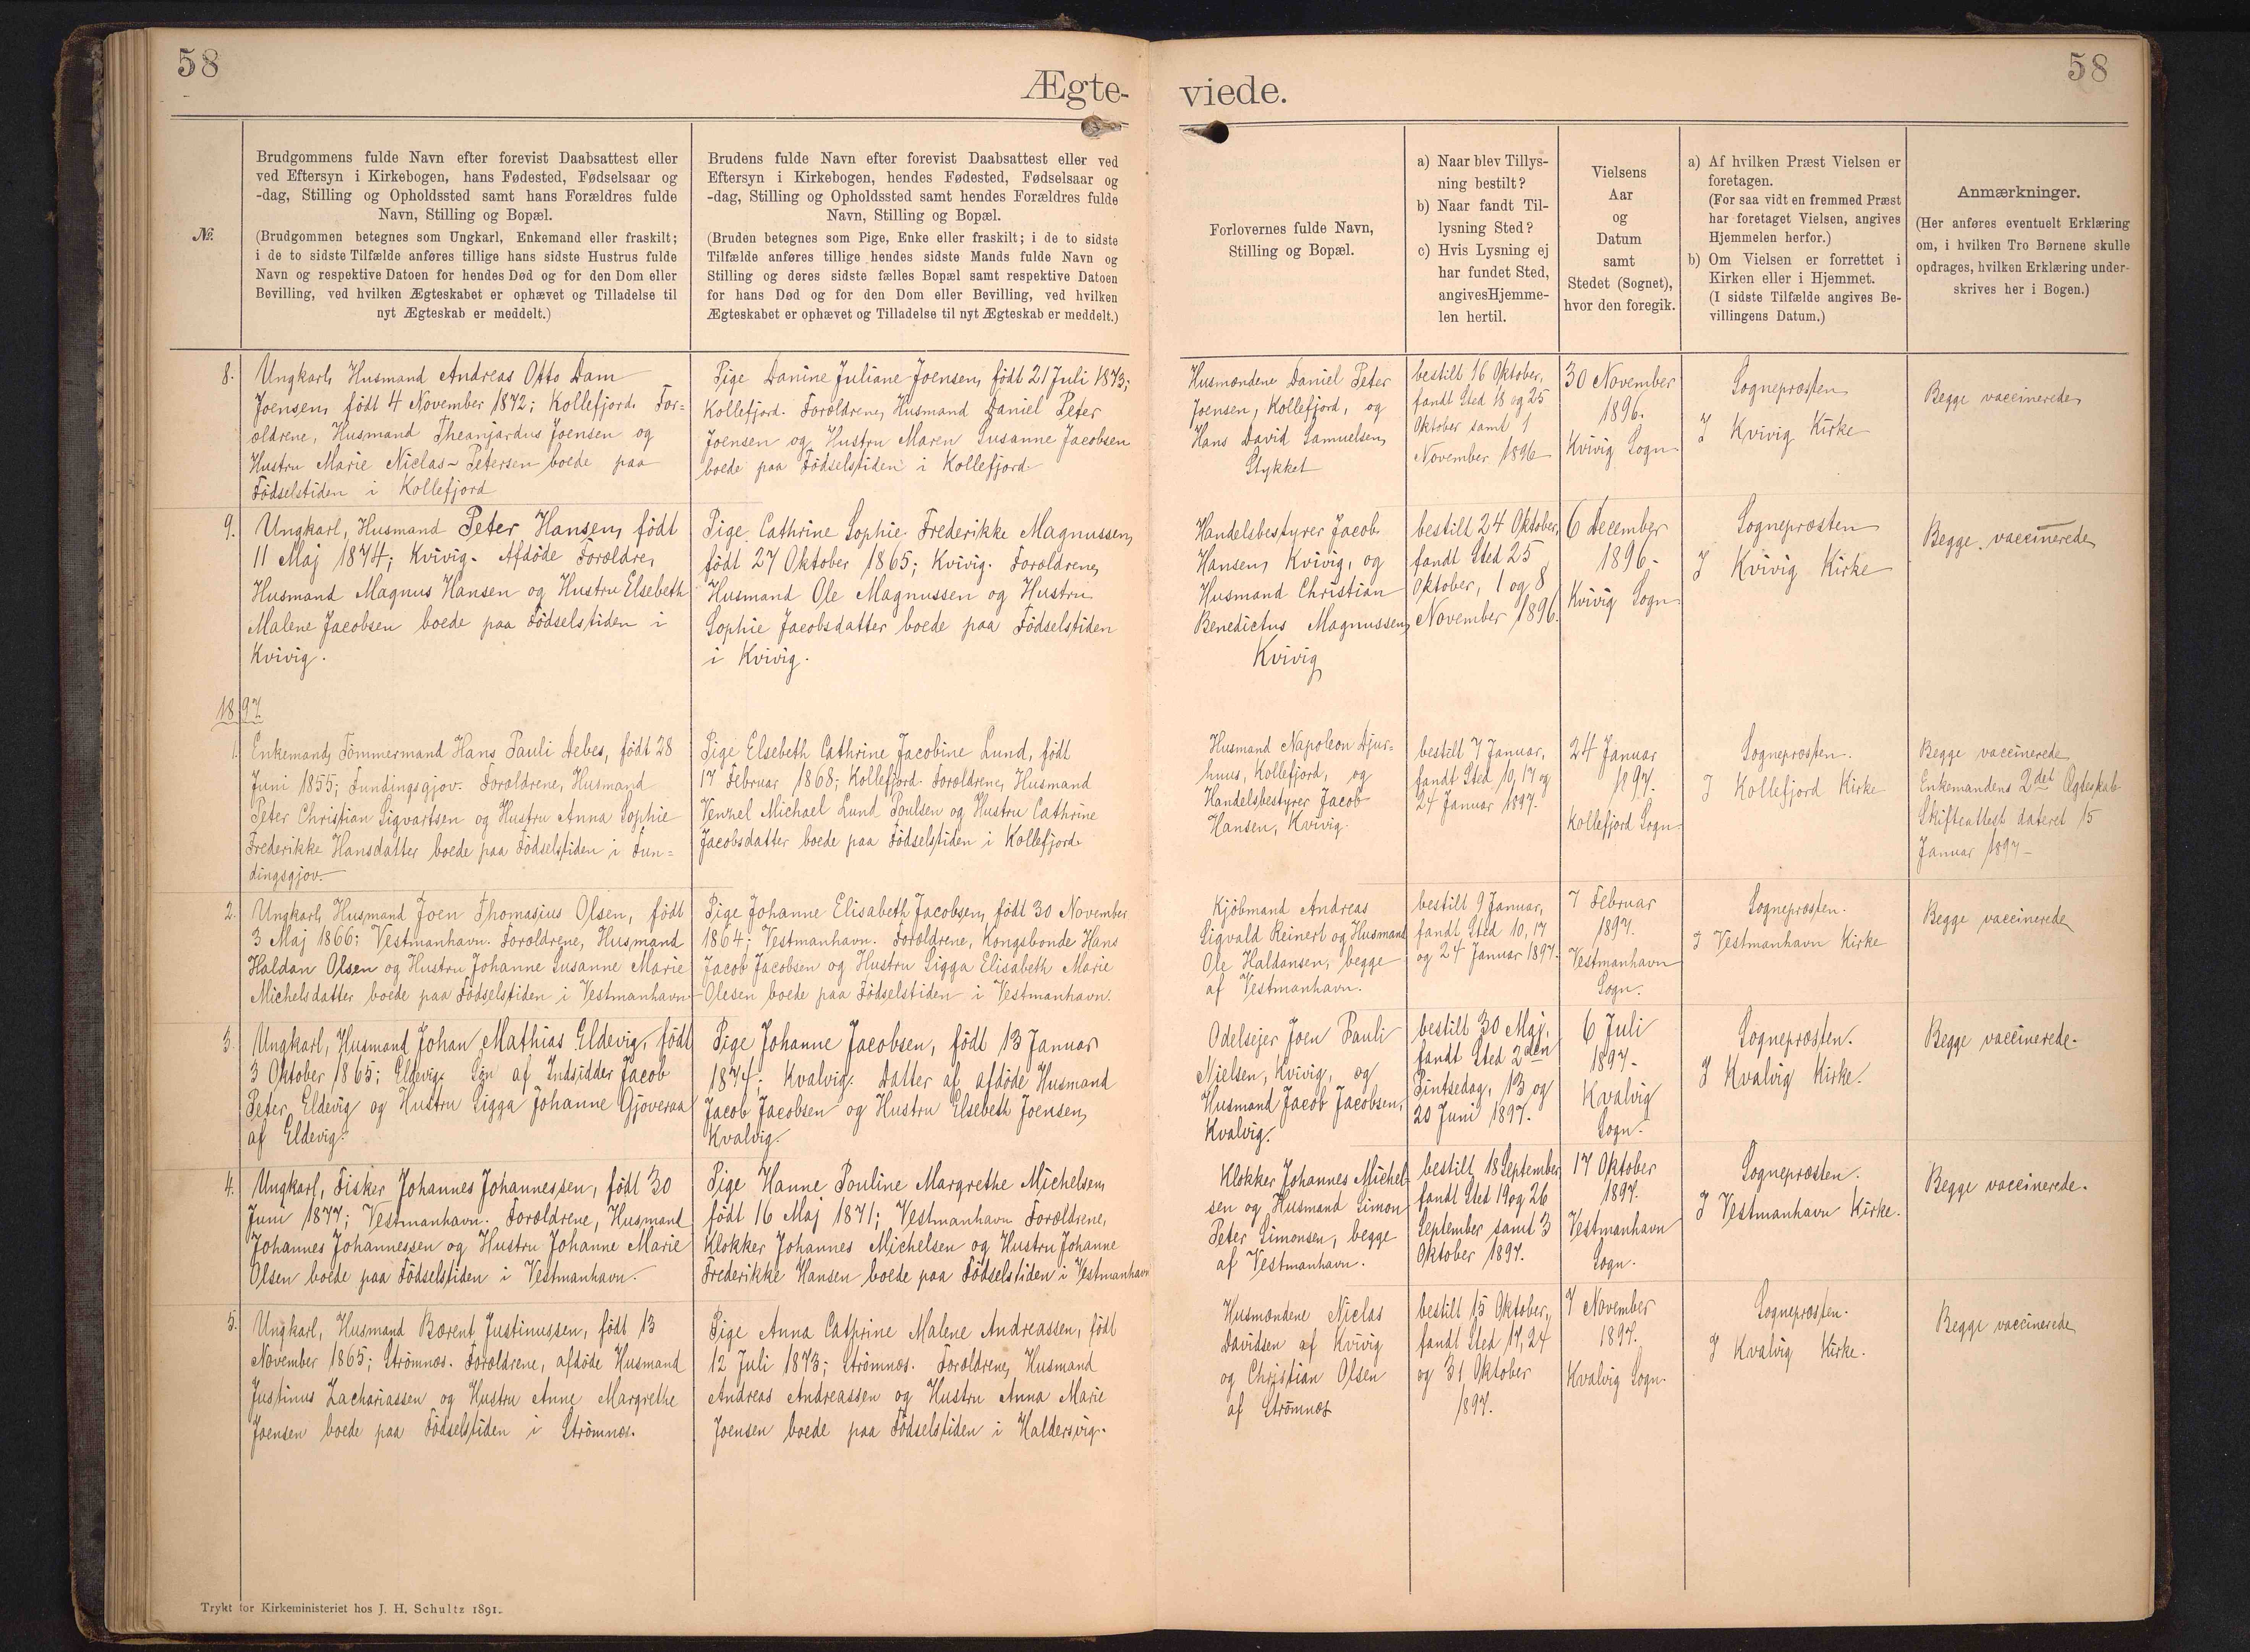 58
58
Ægte-
viede.
№.
Brudgommens fulde Navn efter forevist Daabsattest eller
ved Eftersyn i Kirkebogen, hans Fødested, Fødselsaar og
-dag, Stilling og Opholdssted samt hans Forældres fulde
Navn, Stilling og Bopæl.
(Brudgommen betegnes som Ungkarl, Enkemand eller fraskilt;
i de to sidste Tilfælde anføres tillige hans sidste Hustrus fulde
Navn og respektive Datoen for hendes Død og for den Dom eller
Bevilling, ved hvilken Ægteskabet er ophævet og Tilladelse til
nyt Ægteskab er meddelt.)
Brudens fulde Navn efter forevist Daabsattest eller ved
Eftersyn i Kirkebogen, hendes Fødested, Fødselsaar og
-dag, Stilling og Opholdssted samt hendes Forældres fulde
Navn, Stilling og Bopæl.
(Bruden betegnes som Pige, Enke eller fraskilt; i de to sidste
Tilfælde anføres tillige hendes sidste Mands fulde Navn og
Stilling og deres sidste fælles Bopæl samt respektive Datoen
for hans Død og for den Dom eller Bevilling, ved hvilken
Ægteskabet er ophævet og Tilladelse til nyt Ægteskab er meddelt.)
Forlovernes fulde Navn,
Stilling og Bopæl.
a) Naar blev Tillys-
ning bestilt?
b) Naar fandt Til-
lysning Sted?
c) Hvis Lysning ej
har fundet Sted,
angivesHjemme-
len hertil.
Vielsens
Aar
og
Datum
samt
Stedet (Sognet),
hvor den foregik.
a) Af hvilken Præst Vielsen er
foretagen.
(For saa vidt en fremmed Præst
har foretaget Vielsen, angives
Hjemmelen herfor.)
b) Om Vielsen er forrettet i
Kirken eller i Hjemmet.
(I sidste Tilfælde angives Be-
villingens Datum.)
Anmærkninger.
(Her anføres eventuelt Erklæring
om, i hvilken Tro Børnene skulle
opdrages, hvilken Erklæring under-
skrives her i Bogen.)
8.
Ungkarl, Husmand Andreas Otto Dam
Joensen, født 4 November 1872; Kollefjord. For=
ældrene, Husmand Theanjardus Joensen og
Hustru Marie Niclas- Petersen boede paa
Fødselstiden i Kollefjord
Pige Danine Juliane Joensen, født 21 Juli 1873;
Kollefjord. Forældrene, Husmand Daniel Peter
Joensen og Hustru Maren Susanne Jacobsen
boede paa Fødselstiden i Kollefjord.
Husmændene Daniel Peter
Joensen, Kollefjord, og
Hans David Samuelsen,
Stykket
bestilt 16 Oktober,
fandt Sted 18 og 25
Oktober samt 1
November 1896
30 November
1896.
Kvivig Sogn
Sognepræsten
I Kvivig Kirke
Begge vaccinerede
9.
Ungkarl, Husmand Peter Hansen, født
11 Maj 1874; Kvivig. Afdøde Forældre,
Husmand Magnus Hansen og Hustru Elsebeth
Malene Jacobsen boede paa Fødselstiden i
Kvivig.
Pige Cathrine Sophie Frederikke Magnussen,
født 27 Oktober 1865; Kvivig. Forældrene,
Husmand Ole Magnussen og Hustru
Sophie Jacobsdatter boede paa Fødselstiden
i Kvivig.
Handelsbestyrer Jacob
Hansen, Kvivig, og
Husmand Christian
Benedictus Magnussen,
Kvivig
bestilt 24 Oktober,
fandt Sted 25
Oktober, 1 og 8
November 1896.
6 December
1896.
Kvivig Sogn
Sognepræsten
I Kvivig Kirke
Begge vaccinerede
1897.
1.
Enkemand, Tømmermand Hans Pauli Debes, født 28
Juni 1855; Fundingsgjov. Forældrene, Husmand
Peter Christian Sigvartsen og Hustru Anna Sophie
Frederikke Hansdatter boede paa Fødselstiden i Fun=
dingsgjov.
Pige Elsebeth Cathrine Jacobine Lund, født
17 Februar 1868; Kollefjord. Forældrene, Husmand
Venzel Michael Lund Poulsen og Hustru Cathrine
Jacobsdatter boede paa Fødselstiden i Kollefjord.
Husmand Napoleon Djur=
huus, Kollefjord, og
Handelsbestyrer Jacob
Hansen, Kvivig.
bestilt 7 Januar,
fandt Sted 10, 17 og
24 Januar 1897.
24 Januar
1897.
Kollefjord Sogn
Sognepræsten.
I Kollefjord Kirke
Begge vaccinerede
Enkemandens 2det Ægteskab
Skifteattest dateret 15
Januar 1897
2.
Ungkarl, Husmand Joen Thomasius Olsen, født
3 Maj 1866; Vestmanhavn. Forældrene, Husmand
Haldan Olsen og Hustru Johanne Susanne Marie
Michelsdatter boede paa Fødselstiden i Vestmanhavn
Pige Johanne Elisabeth Jacobsen, født 30 November
1864; Vestmanhavn. Forældrene, Kongsbonde Hans
Jacob Jacobsen og Hustru Sigga Elisabeth Marie
Olesen boede paa Fødselstiden i Vestmanhavn.
Kjøbmand Andreas
Sigvald Reinert og Husmand
Ole Haldansen, begge
af Vestmanhavn.
bestilt 9 Januar,
fandt Sted 10, 17
og 24 Januar 1897.
7 Februar
1897.
Vestmanhavn
Sogn.
Sognepræsten.
I Vestmanhavn Kirke
Begge vaccinerede
3.
Ungkarl, Husmand Johan Mathias Eldevig, født
3 Oktober 1865; Eldevig. Søn af Indsidder Jacob
Peter Eldevig og Hustru Sigga Johanne Gjoveraa
af Eldevig.
Pige Johanne Jacobsen, født 13 Januar
1874; Kvalvig. Datter af afdøde Husmand
Jacob Jacobsen og Hustru Elsebeth Joensen,
Kvalvig.
Odelsejer Joen Pauli
Nielsen, Kvivig, og
Husmand Jacob Jacobsen,
Kvalvig.
bestilt 30 Maj,
fandt Sted 2den
Pintsedag, 13 og
20 Juni 1897.
6 Juli
1897.
Kvalvig
Sogn.
Sognepræsten.
I Kvalvig Kirke.
Begge vaccinerede.
4.
Ungkarl, Fisker Johannes Johannessen, født 30
Juni 1877; Vestmanhavn. Forældrene, Husmand
Johannes Johannessen og Hustru Johanne Marie
Olsen boede paa Fødselstiden i Vestmanhavn.
Pige Hanne Pouline Margrethe Michelsen,
født 16 Maj 1871; Vestmanhavn Forældrene,
Klokker Johannes Michelsen og Hustru Johanne
Frederikke Hansen boede paa Fødselstiden i Vestmanhavn
Klokker Johannes Michel-
sen og Husmand Simon
Peter Simonsen, begge
af Vestmanhavn.
bestilt 18 September
fandt Sted 19 og 26
September samt 3
Oktober 1897.
17 Oktober
1897.
Vestmanhavn
Sogn.
Sognepræsten.
I Vestmanhavn Kirke.
Begge vaccinerede.
5.
Ungkarl, Husmand Bærent Justinussen, født 13
November 1865; Strømnæs. Forældrene, afdøde Husmand
Justinus Zachariassen og Hustru Anne Margrethe
Joensen boede paa Fødselstiden i Strømnæs.
Pige Anna Cathrine Malene Andreassen, født
12 Juli 1873; Strømnæs. Forældrene, Husmand
Andreas Andreassen og Hustru Anna Marie
Joensen boede paa Fødselstiden i Haldersvig.
Husmændene Niclas
Davidsen af Kvivig
og Christian Olsen
af Strømnæs
bestilt 15 Oktober,
fandt Sted 17, 24
og 31 Oktober
1897.
7 November
1897.
Kvalvig Sogn.
Sognepræsten.
I Kvalvig Kirke.
Begge vaccinerede
Trykt for Kirkeministeriet hos J. H. Schultz 1891.